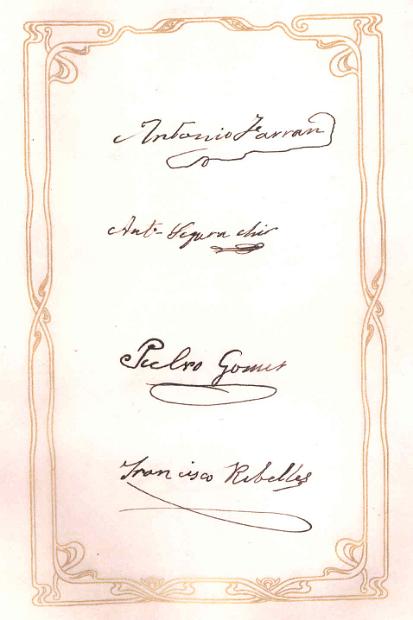 Antonio Farran
Ant. Segura
Pedro Gomes
Francisco Ribelles